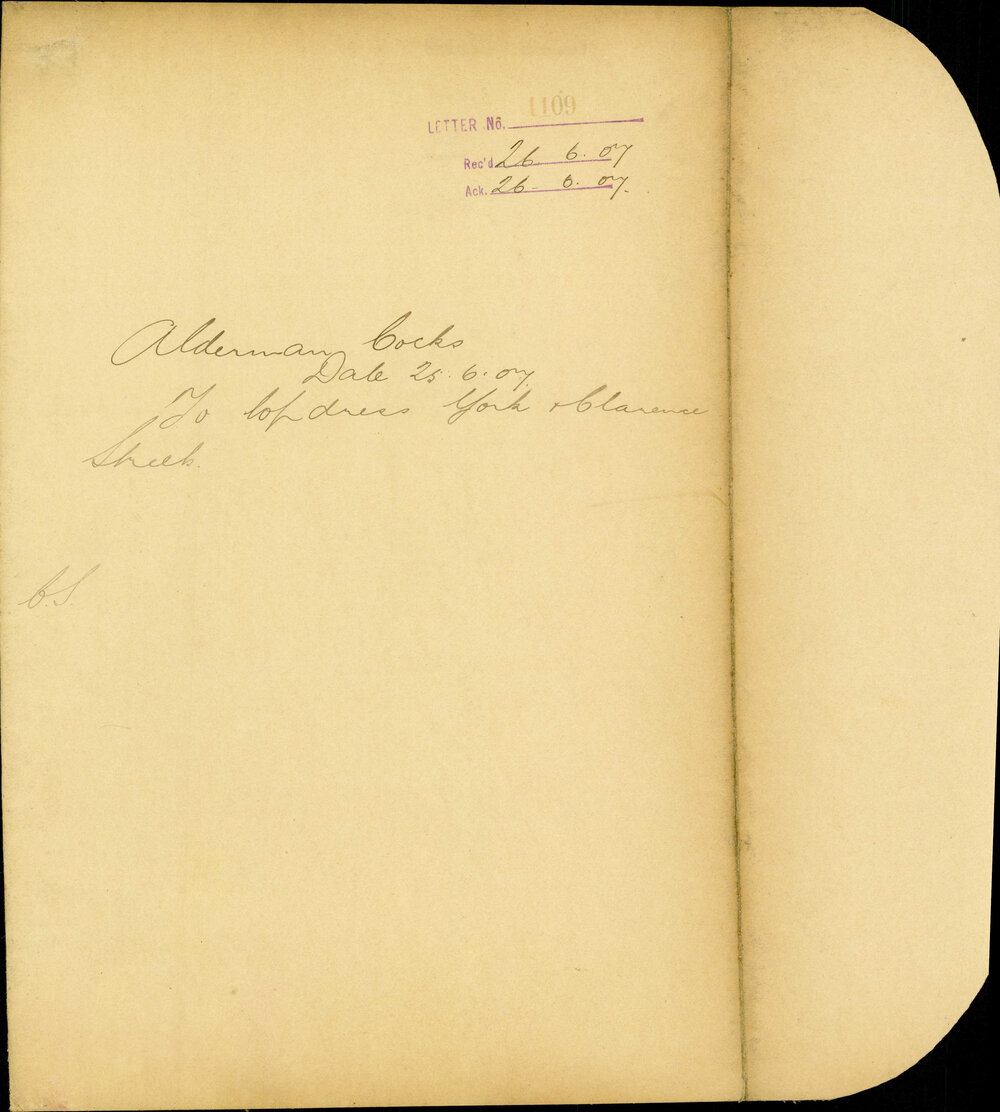 LETTER No. 1109
Rec'd 26. 6. 07
Ack. 26. 6. 07.
Alderman Cocks
Date 25. 6. 07.
To top dress York & Clarence
Streets.
C.S.